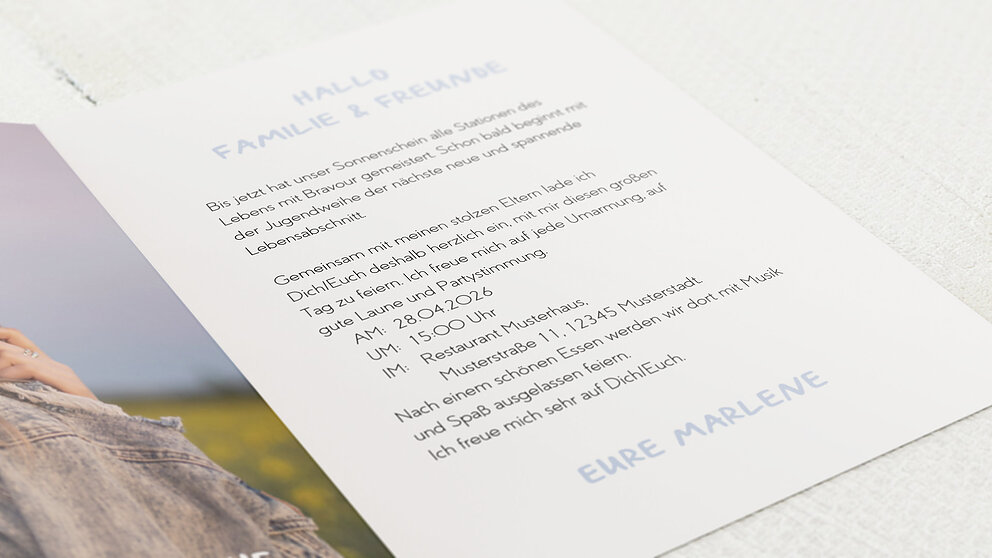 HALLO
FAMILIE & FREUNDE
Bis jetzt hat unser Sonnenschein alle Stationen des
Lebens mit Bravour gemeistert. Schon bald beginnt mit
der Jugendweihe der nächste neue und spannende
Lebensabschnitt.
Gemeinsam mit meinen stolzen Eltern lade ich
Dich/Euch deshalb herzlich ein, mit mir diesen großen
Tag zu feiern. Ich freue mich auf jede Umarmung, auf
gute Laune und Partystimmung.
AM: 28.04.2026
UM: 15:00 Uhr
IM: Restaurant Musterhaus,
Musterstraße 11, 12345 Musterstadt
Nach einem schönen Essen werden wir dort mit Musik
und Spaß ausgelassen feiern.
Ich freue mich sehr auf Dich/Euch.
EURE MARLENE